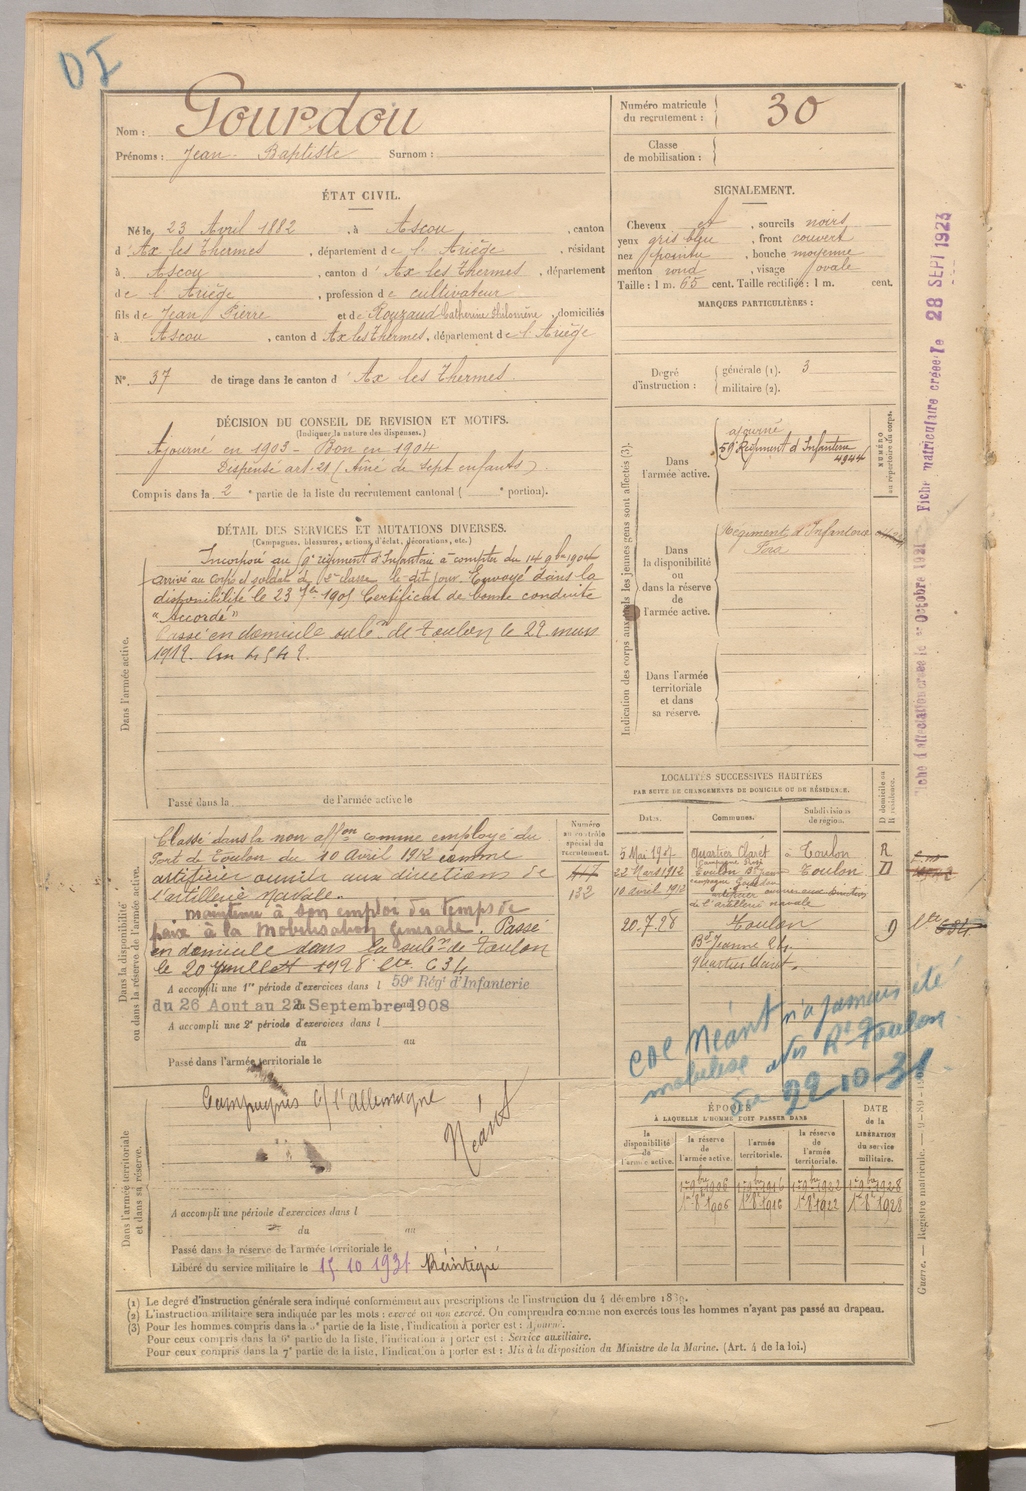 DI
Nom : Gourdou
Prénoms : Jean Baptiste Surnom :
Numéro matricule du recrutement : 30
Classe de mobilisation :
ÉTAT CIVIL.
Né le 23 Avril 1882, à Ascou, canton
d'Ax les Thermes, département de l'Ariège, résidant
à Ascou, canton d'Ax les Thermes, département
de l'Ariège, profession de cultivateur
fils de Jean Pierre et de Rouzaud Catherine Philomène, domiciliés
à Ascou, canton d Ax les Thermes, département de l'Ariège
N° 37 de tirage dans le canton d'Ax les Thermes
SIGNALEMENT.
Cheveux et, sourcils noirs
yeux gris bleu, front couvert
nez pointu, bouche moyenne
menton rond, visage ovale
Taille : 1 m. 65 cent. Taille rectifiée : 1 m. cent.
MARQUES PARTICULIÈRES :
Degré d'instruction : générale (1). 3
militaire (2).
DÉCISION DU CONSEIL DE REVISION ET MOTIFS.
(Indiquer la nature des dispenses.)
Ajourné en 1903 - Bon en 1904
Dispensé art. 21 (Aîné de sept enfants)
Compris dans la 2e partie de la liste du recrutement cantonal ( e portion).
DÉTAIL DES SERVICES ET MUTATIONS DIVERSES.
(Campagnes, blessures, actions d'éclat, décorations, etc.)
Dans l'armée active.
Incorporé au régiment d'Infanterie à compter du 14 9bre 1904
arrivé au corps et soldat de 2e classe le dit jour. Envoyé dans la
disponibilité le 23 Certificat de bonne conduite
"Accordé"
Passé en domicile subon de Toulon le 22 mars
1912.
Passé dans la de l'armée active le
Indication des corps auxquels les jeunes gens sont affectés (3).
NUMÉRO au répertoire du corps.
Dans l'armée active.
ajourné
59e Régiment d'Infanterie
4944
Dans la disponibilité ou dans la réserve de l'armée active.
Régiment d'Infanterie
Foix
Dans l'armée territoriale et dans sa réserve.
LOCALITÉS SUCCESSIVES HABITÉES
PAR SUITE DE CHANGEMENTS DE DOMICILE OU DE RÉSIDENCE.
Dates. Communes. Subdivisions de région. D domicile ou R résidence.
5 Mai 1907 Quartier Claret à Toulon R
22 Mars 1912 Toulon Toulon D
10 avril 1912 artificier ouvrier aux directions
de l'artillerie navale
20.7.28 Toulon
Bd Jeanne
quartier Claret.
Dans la disponibilité ou dans la réserve de l'armée active.
Numéro au contrôle spécial du recrutement.
417
132
Classé dans la non affon comme employé du
Port de Toulon du 10 Avril 1912 comme
artificier ouvrier aux directions de
l'artillerie navale.
maintenu à son emploi du temps de
paix à la Mobilisation Générale. Passé
en domicile dans la subon de Toulon
le 20 Juillet 1928 634
A accompli une 1re période d'exercices dans l 59e Régt d'Infanterie
du 26 Aout au 22 Septembre 1908
A accompli une 2e période d'exercices dans l
du au
Passé dans l'armée territoriale le
Dans l'armée territoriale et dans sa réserve.
Campagnes c/ l'Allemagne
Néant
A accompli une période d'exercices dans l
du au
Passé dans la réserve de l'armée territoriale le
Libéré du service militaire le 15 10 1931 Réintégré
CDC Néant n'a jamais été
mobilisé Toulon
22-10-31
ÉPOQUE
À LAQUELLE L'HOMME DOIT PASSER DANS
la disponibilité de l'armée active. la réserve de l'armée active. l'armée territoriale. la réserve de l'armée territoriale. DATE de la LIBÉRATION du service militaire.
1er 9bre 1906 1er 9bre 1916 1er 9bre 1922 1er 9bre 1928
1er 8e 1906 1er 8e 1916 1er 8e 1922 1er 8e 1928
Fiche d'affectation créée le 1er Octobre 1921 Fiche matriculture créée le 28 SEPT 1923
Guerre. — Registre matricule.
(1) Le degré d'instruction générale sera indiqué conformément aux prescriptions de l'instruction du 4 décembre 1889.
(2) L'instruction militaire sera indiquée par les mots : exercé ou non exercé. On comprendra comme non exercés tous les hommes n'ayant pas passé au drapeau.
(3) Pour les hommes compris dans la 5e partie de la liste, l'indication à porter est : Ajourné.
Pour ceux compris dans la 6e partie de la liste, l'indication à porter est : Service auxiliaire.
Pour ceux compris dans la 7e partie de la liste, l'indication à porter est : Mis à la disposition du Ministre de la Marine. (Art. 4 de la loi.)